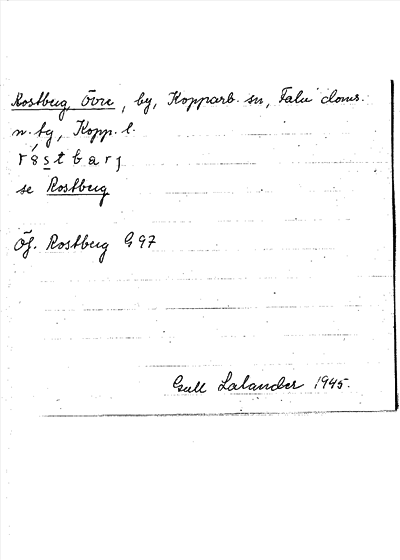 Rostberg, Övre, by, Kopparb. sn, Falu doms.
n. tg, Kopp. l.
róstbarj
se Rostberg
Öf. Rostberg G 97
Gull Lalander 1945.